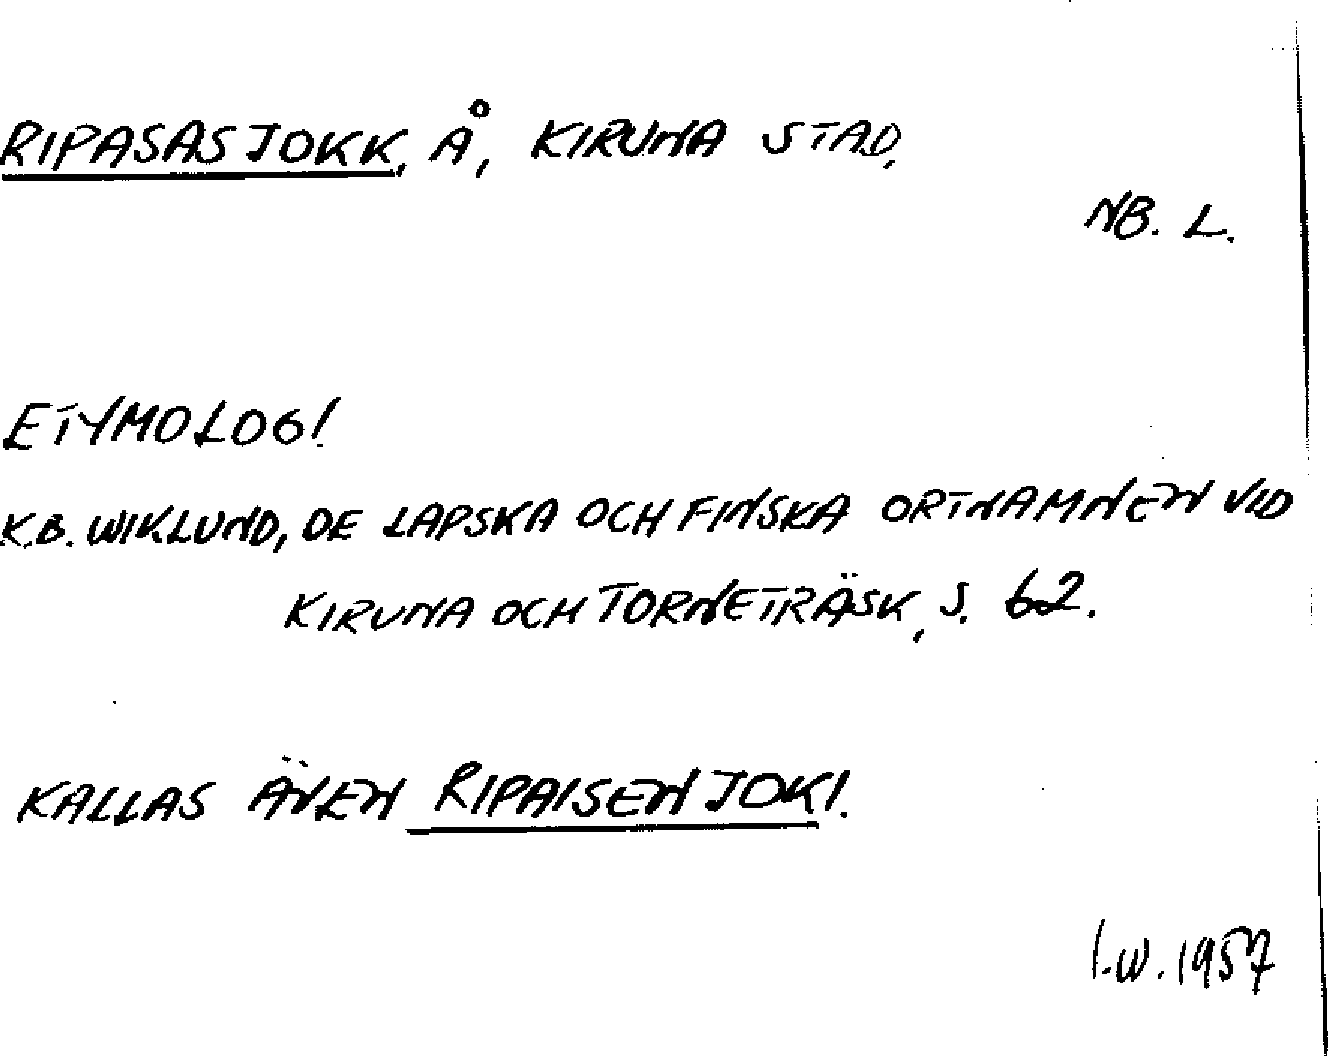 RIPASASJOKK, Å, KIRUNA STAD,
NB. L.
ETYMOLOGI.
K.B. WIKLUND, DE LAPSKA OCH FINSKA ORTNAMNEN VID
KIRUNA OCH TORNETRÄSK, S. 62.
KALLAS ÄVEN RIPAISENJOKI.
I.W. 1957